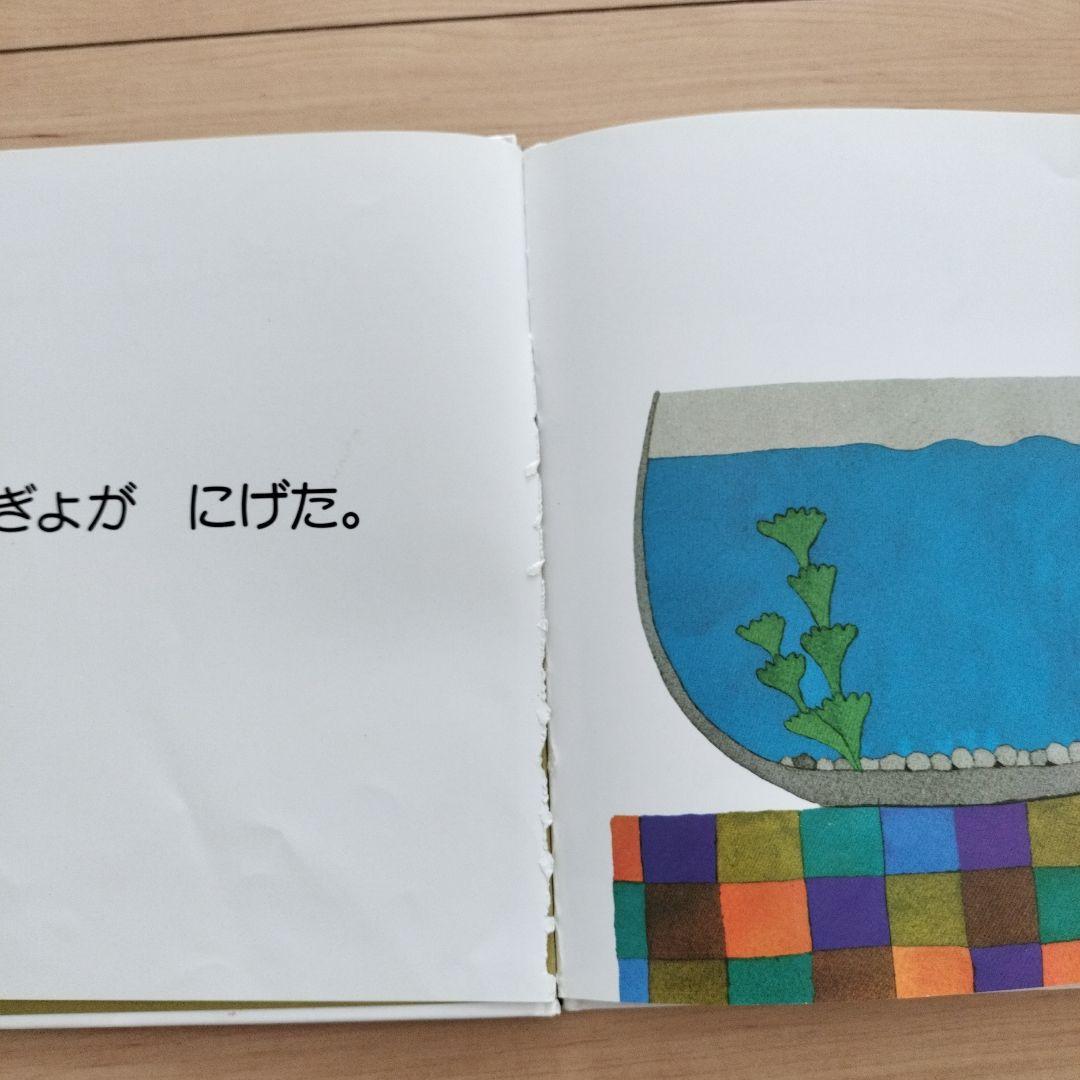 ぎょが にげた。